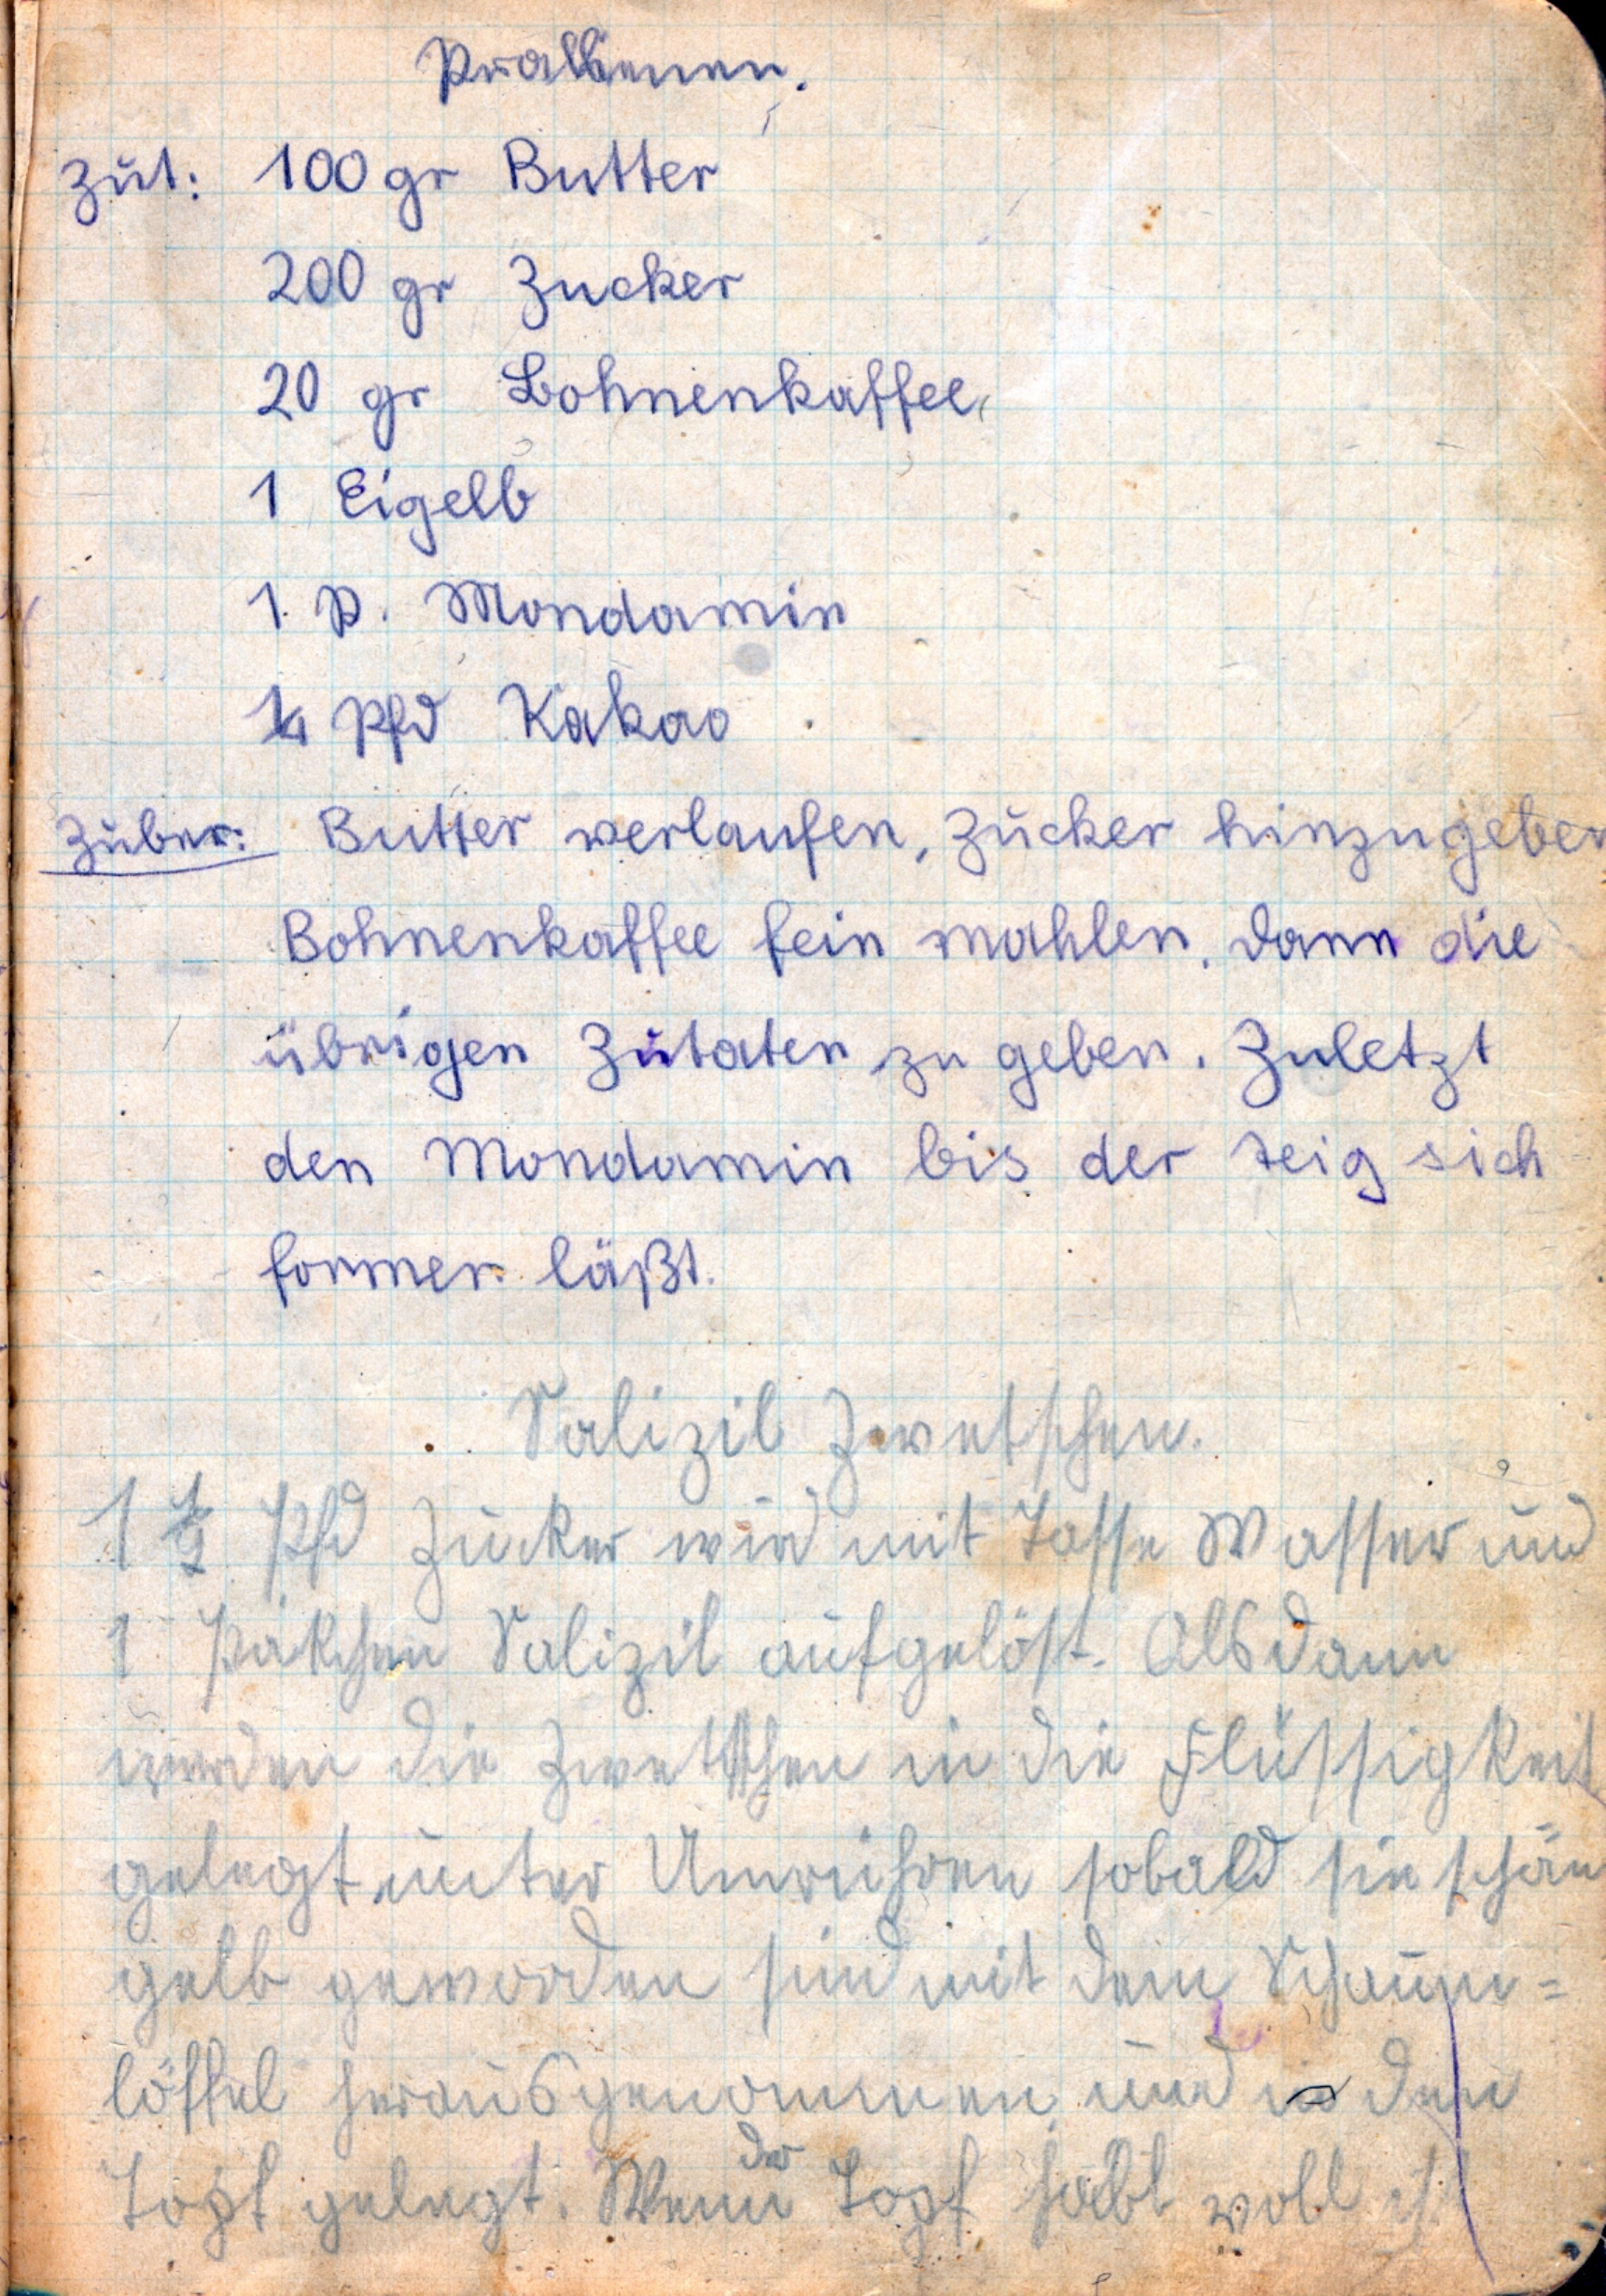 Pralienen.
Zut: 100 gr Butter
200 gr Zucker
20 gr Bohnenkaffee,
1 Eigelb
1 P. Mondamin
1/4 Pfd Kakao
Zuber: Butter verlaufen, Zucker hinzugeben
Bohnenkaffee fein mahlen, dann die
übrigen Zutaten zu geben. Zuletzt
den Mondamin bis der Teig sich
formen läßt.
Salizil Zwetschen.
1 1/2 Pfd Zucker wird mit Tasse Wasser und
1 Päkchen Salizil aufgelöst. Alsdann
werden die Zwetschen in die Flüssigkeit
gelegt unter Umrühren sobald sie schön
gelb geworden sind mit dem Schaum=
löffel herausgenommen und in den
Topf gelegt. Wenn der Topf halb voll ist